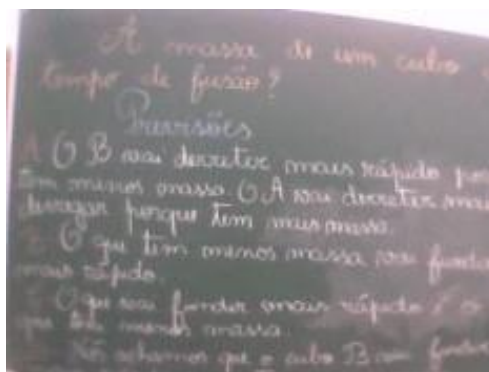 A massa de um cubo
tempo de fusão?
Previsões
A O B vai derreter mais rápido
tem menos massa. O A vai derreter mais
devagar porque tem mais massa.
O que tem menos massa vai
mais rápido.
O que vai fundir mais rápido é o
que tem menos massa.
Nós achamos que o cubo B vai